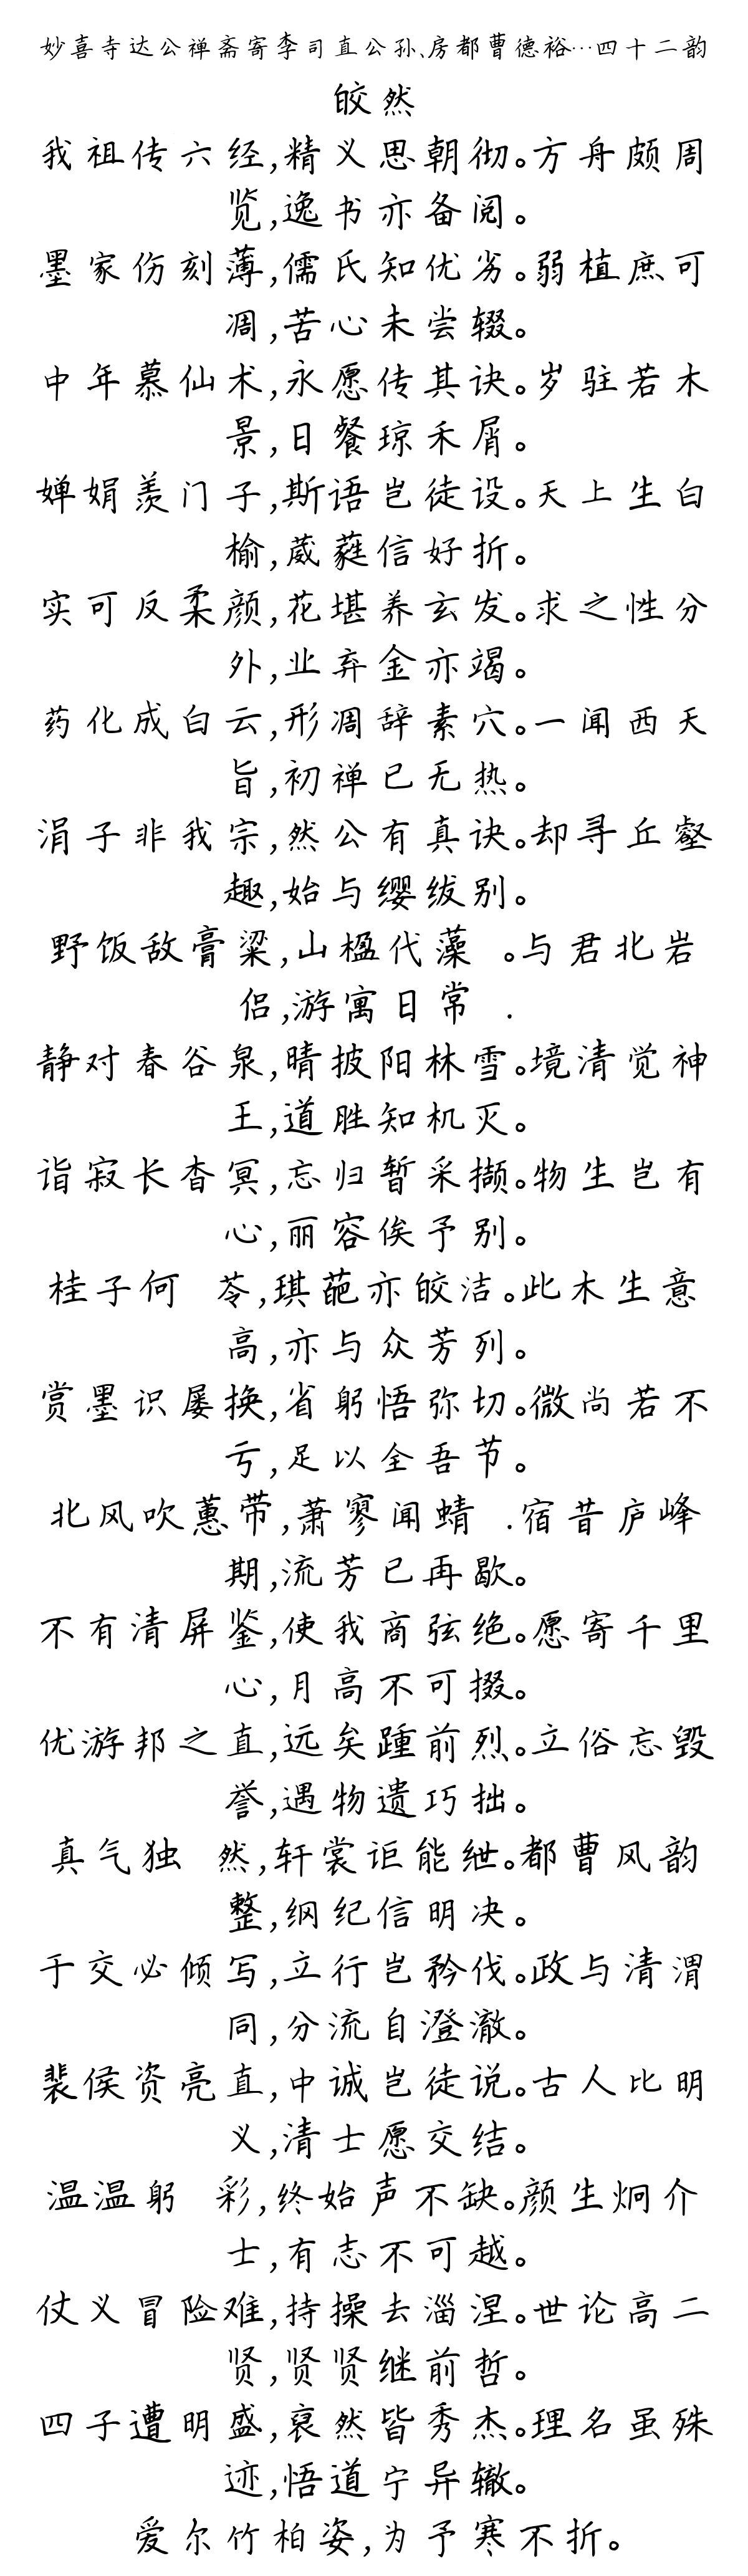 妙喜寺达公禅斋寄李司直公孙、房都曹德裕…四十二韵
皎然
我祖传六经,精义思朝彻。方舟颇周
览,逸书亦备阅。
墨家伤刻薄,儒氏知优劣。弱植庶可
凋,苦心未尝辍。
中年慕仙术,永愿传其诀。岁驻若木
景,日餐琼禾屑。
婵娟羡门子,斯语岂徒设。天上生白
榆,葳蕤信好折。
实可反柔颜,花堪养玄发。求之性分
外,业弃金亦竭。
药化成白云,形凋辞素穴。一闻西天
旨,初禅已无热。
涓子非我宗,然公有真诀。却寻丘壑
趣,始与缨绂别。
野饭敌膏粱,山楹代藻 。与君北岩
侣,游寓日常 .
静对春谷泉,晴披阳林雪。境清觉神
王,道胜知机灭。
诣寂长杳冥,忘归暂采撷。物生岂有
心,丽容俟予别。
桂子何 苓,琪葩亦皎洁。此木生意
高,亦与众芳列。
赏墨识屡换,省躬悟弥切。微尚若不
亏,足以全吾节。
北风吹蕙带,萧寥闻蜻 .宿昔庐峰
期,流芳已再歇。
不有清屏鉴,使我商弦绝。愿寄千里
心,月高不可掇。
优游邦之直,远矣踵前烈。立俗忘毁
誉,遇物遗巧拙。
真气独 然,轩裳讵能绁。都曹风韵
整,纲纪信明决。
于交必倾写,立行岂矜伐。政与清渭
同,分流自澄澈。
裴侯资亮直,中诚岂徒说。古人比明
义,清士愿交结。
温温躬 彩,终始声不缺。颜生炯介
士,有志不可越。
仗义冒险难,持操去淄涅。世论高二
贤,贤贤继前哲。
四子遭明盛,裒然皆秀杰。理名虽殊
迹,悟道宁异辙。
爱尔竹柏姿,为予寒不折。